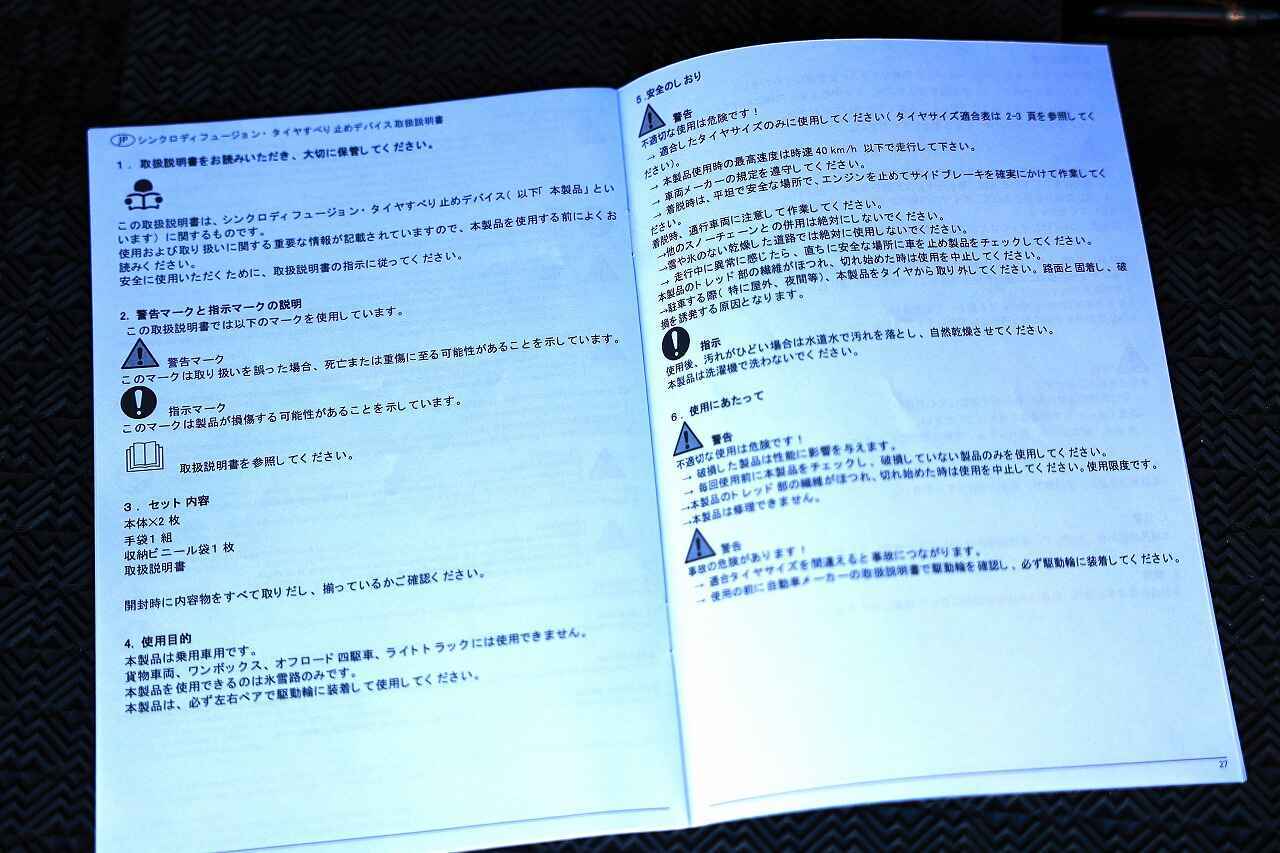 JP シンクロディフュージョン・タイヤすべり止めデバイス取扱説明書
1. 取扱説明書をお読みいただき、大切に保管してください。
この取扱説明書は、シンクロディフュージョン・タイヤすべり止めデバイス(以下「本製品」とい
います)に関するものです。
使用および取り扱いに関する重要な情報が記載されていますので、本製品を使用する前によくお
読みください。
安全に使用いただくために、取扱説明書の指示に従ってください。
2. 警告マークと指示マークの説明
この取扱説明書では以下のマークを使用しています。
警告マーク
このマークは取り扱いを誤った場合、死亡または重傷に至る可能性があることを示しています。
指示マーク
このマークは製品が損傷する可能性があることを示しています。
取扱説明書を参照してください。
3. セット内容
本体×2 枚
手袋1 組
収納ビニール袋1 枚
取扱説明書
開封時に内容物をすべて取りだし、揃っているかご確認ください。
4. 使用目的
本製品は乗用車用です。
貨物車両、ワンボックス、オフロード四駆車、ライトトラックには使用できません。
本製品を使用できるのは氷雪路のみです。
本製品は、必ず左右ペアで駆動輪に装着して使用してください。
5.安全のしおり
警告
不適切な使用は危険です!
→ 適合したタイヤサイズのみに使用してください(タイヤサイズ適合表は 2-3 頁を参照してく
ださい)。
→ 本製品使用時の最高速度は時速40 km/h 以下で走行して下さい。
→ 車両メーカーの規定を遵守してください。
→ 着脱時は、平坦で安全な場所で、エンジンを止めてサイドブレーキを確実にかけて作業してく
ださい。
着脱時、通行車両に注意して作業してください。
→他のスノーチェーンとの併用は絶対にしないでください。
→雪や氷のない乾燥した道路では絶対に使用しないでください。
→ 走行中に異常に感じたら、直ちに安全な場所に車を止め製品をチェックしてください。
本製品のトレッド部の繊維がほつれ、切れ始めた時は使用を中止してください。
→駐車する際(特に屋外、夜間等)、本製品をタイヤから取り外してください。路面と固着し、破
損を誘発する原因となります。
指示
使用後、汚れがひどい場合は水道水で汚れを落とし、自然乾燥させてください。
本製品は洗濯機で洗わないでください。
6. 使用にあたって
警告
不適切な使用は危険です!
→ 破損した製品は性能に影響を与えます。
→ 毎回使用前に本製品をチェックし、破損していない製品のみを使用してください。
→本製品のトレッド部の繊維がほつれ、切れ始めた時は使用を中止してください。使用限度です。
→本製品は修理できません。
警告
事故の危険があります!
→ 適合タイヤサイズを間違えると事故につながります。
→ 使用の前に自動車メーカーの取扱説明書で駆動輪を確認し、必ず駆動輪に装着してください。
27